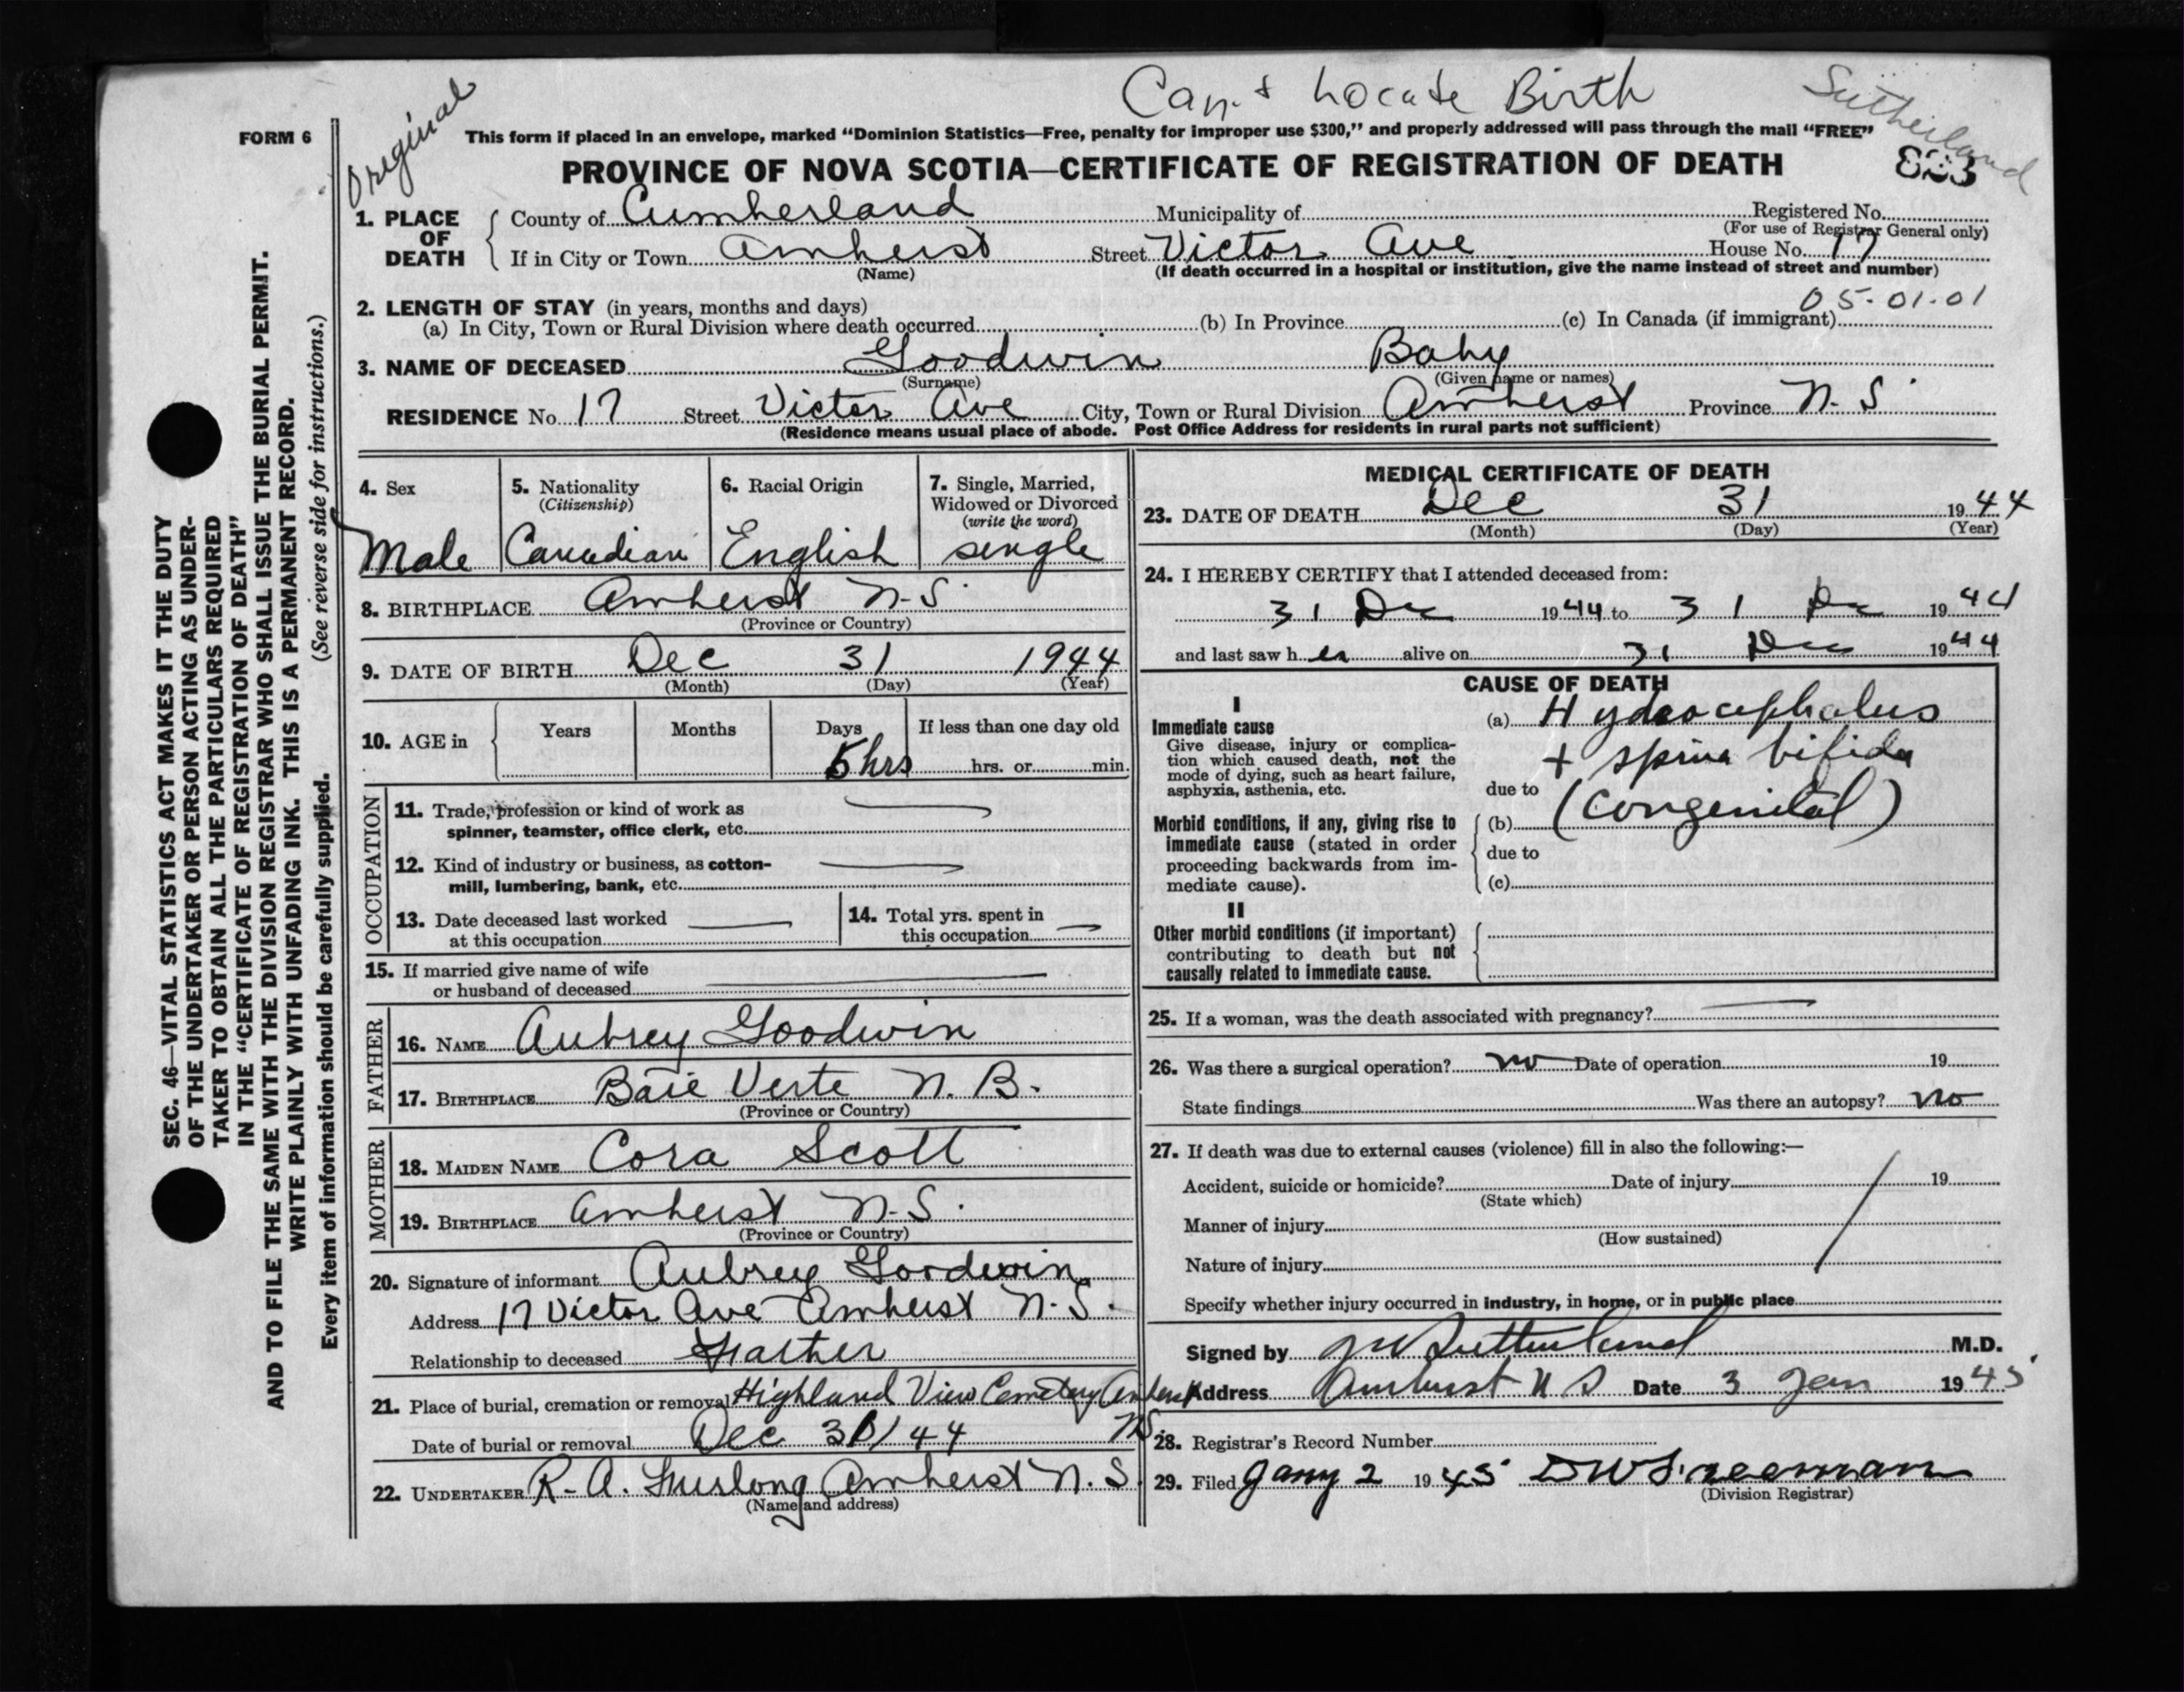 Can't Locate Birth
Sutherland
Original
FORM 6
This form if placed in an envelope, marked "Dominion Statistics—Free, penalty for improper use $300," and properly addressed will pass through the mail "FREE"
PROVINCE OF NOVA SCOTIA—CERTIFICATE OF REGISTRATION OF DEATH
823
1. PLACE OF DEATH
County of Cumberland Municipality of Registered No.
(For use of Registrar General only)
If in City or Town Amherst Street Victor Ave House No. 17
(Name) (If death occurred in a hospital or institution, give the name instead of street and number)
05-01-01
2. LENGTH OF STAY (in years, months and days)
(a) In City, Town or Rural Division where death occurred (b) In Province (c) In Canada (if immigrant)
3. NAME OF DECEASED Goodwin Baby
(Surname) (Given name or names)
RESIDENCE No. 17 Street Victor Ave City, Town or Rural Division Amherst Province N. S.
(Residence means usual place of abode. Post Office Address for residents in rural parts not sufficient)
4. Sex
Male
5. Nationality
(Citizenship)
Canadian
6. Racial Origin
English
7. Single, Married,
Widowed or Divorced
(write the word)
single
8. BIRTHPLACE Amherst N.S.
(Province or Country)
9. DATE OF BIRTH Dec 31 1944
(Month) (Day) (Year)
10. AGE in Years Months Days If less than one day old
5 hrs hrs. or min.
OCCUPATION
11. Trade, profession or kind of work as
spinner, teamster, office clerk, etc.
12. Kind of industry or business, as cotton-
mill, lumbering, bank, etc.
13. Date deceased last worked
at this occupation
14. Total yrs. spent in
this occupation
15. If married give name of wife
or husband of deceased
FATHER
16. NAME Aubrey Goodwin
17. BIRTHPLACE Baie Verte N. B.
(Province or Country)
MOTHER
18. MAIDEN NAME Cora Scott
19. BIRTHPLACE Amherst N.S.
(Province or Country)
20. Signature of informant Aubrey Goodwin
Address 17 Victor Ave Amherst N.S.
Relationship to deceased Father
21. Place of burial, cremation or removal Highland View Cemetery Amherst
N.S.
Date of burial or removal Dec 31/44
22. UNDERTAKER R. A. Furlong Amherst N. S.
(Name and address)
MEDICAL CERTIFICATE OF DEATH
23. DATE OF DEATH Dec 31 1944
(Month) (Day) (Year)
24. I HEREBY CERTIFY that I attended deceased from:
31 Dec 1944 to 31 Dec 1944
and last saw her alive on 31 Dec 1944
CAUSE OF DEATH
I
Immediate cause
Give disease, injury or complica-
tion which caused death, not the
mode of dying, such as heart failure,
asphyxia, asthenia, etc.
(a) Hydrocephalus
+ spina bifida
due to
Morbid conditions, if any, giving rise to
immediate cause (stated in order
proceeding backwards from im-
mediate cause).
(b) (congenital)
due to
(c)
II
Other morbid conditions (if important)
contributing to death but not
causally related to immediate cause.
25. If a woman, was the death associated with pregnancy?
26. Was there a surgical operation? no Date of operation 19
State findings Was there an autopsy? no
27. If death was due to external causes (violence) fill in also the following:—
Accident, suicide or homicide? Date of injury 19
(State which)
Manner of injury
(How sustained)
Nature of injury
Specify whether injury occurred in industry, in home, or in public place
Signed by Sutherland M.D.
Address Amherst N S Date 3 Jan 1945
28. Registrar's Record Number
29. Filed Jany 2 1945 D W Freeman
(Division Registrar)
SEC. 46—VITAL STATISTICS ACT MAKES IT THE DUTY
OF THE UNDERTAKER OR PERSON ACTING AS UNDER-
TAKER TO OBTAIN ALL THE PARTICULARS REQUIRED
IN THE "CERTIFICATE OF REGISTRATION OF DEATH"
AND TO FILE THE SAME WITH THE DIVISION REGISTRAR WHO SHALL ISSUE THE BURIAL PERMIT.
WRITE PLAINLY WITH UNFADING INK. THIS IS A PERMANENT RECORD.
(See reverse side for instructions.)
Every item of information should be carefully supplied.